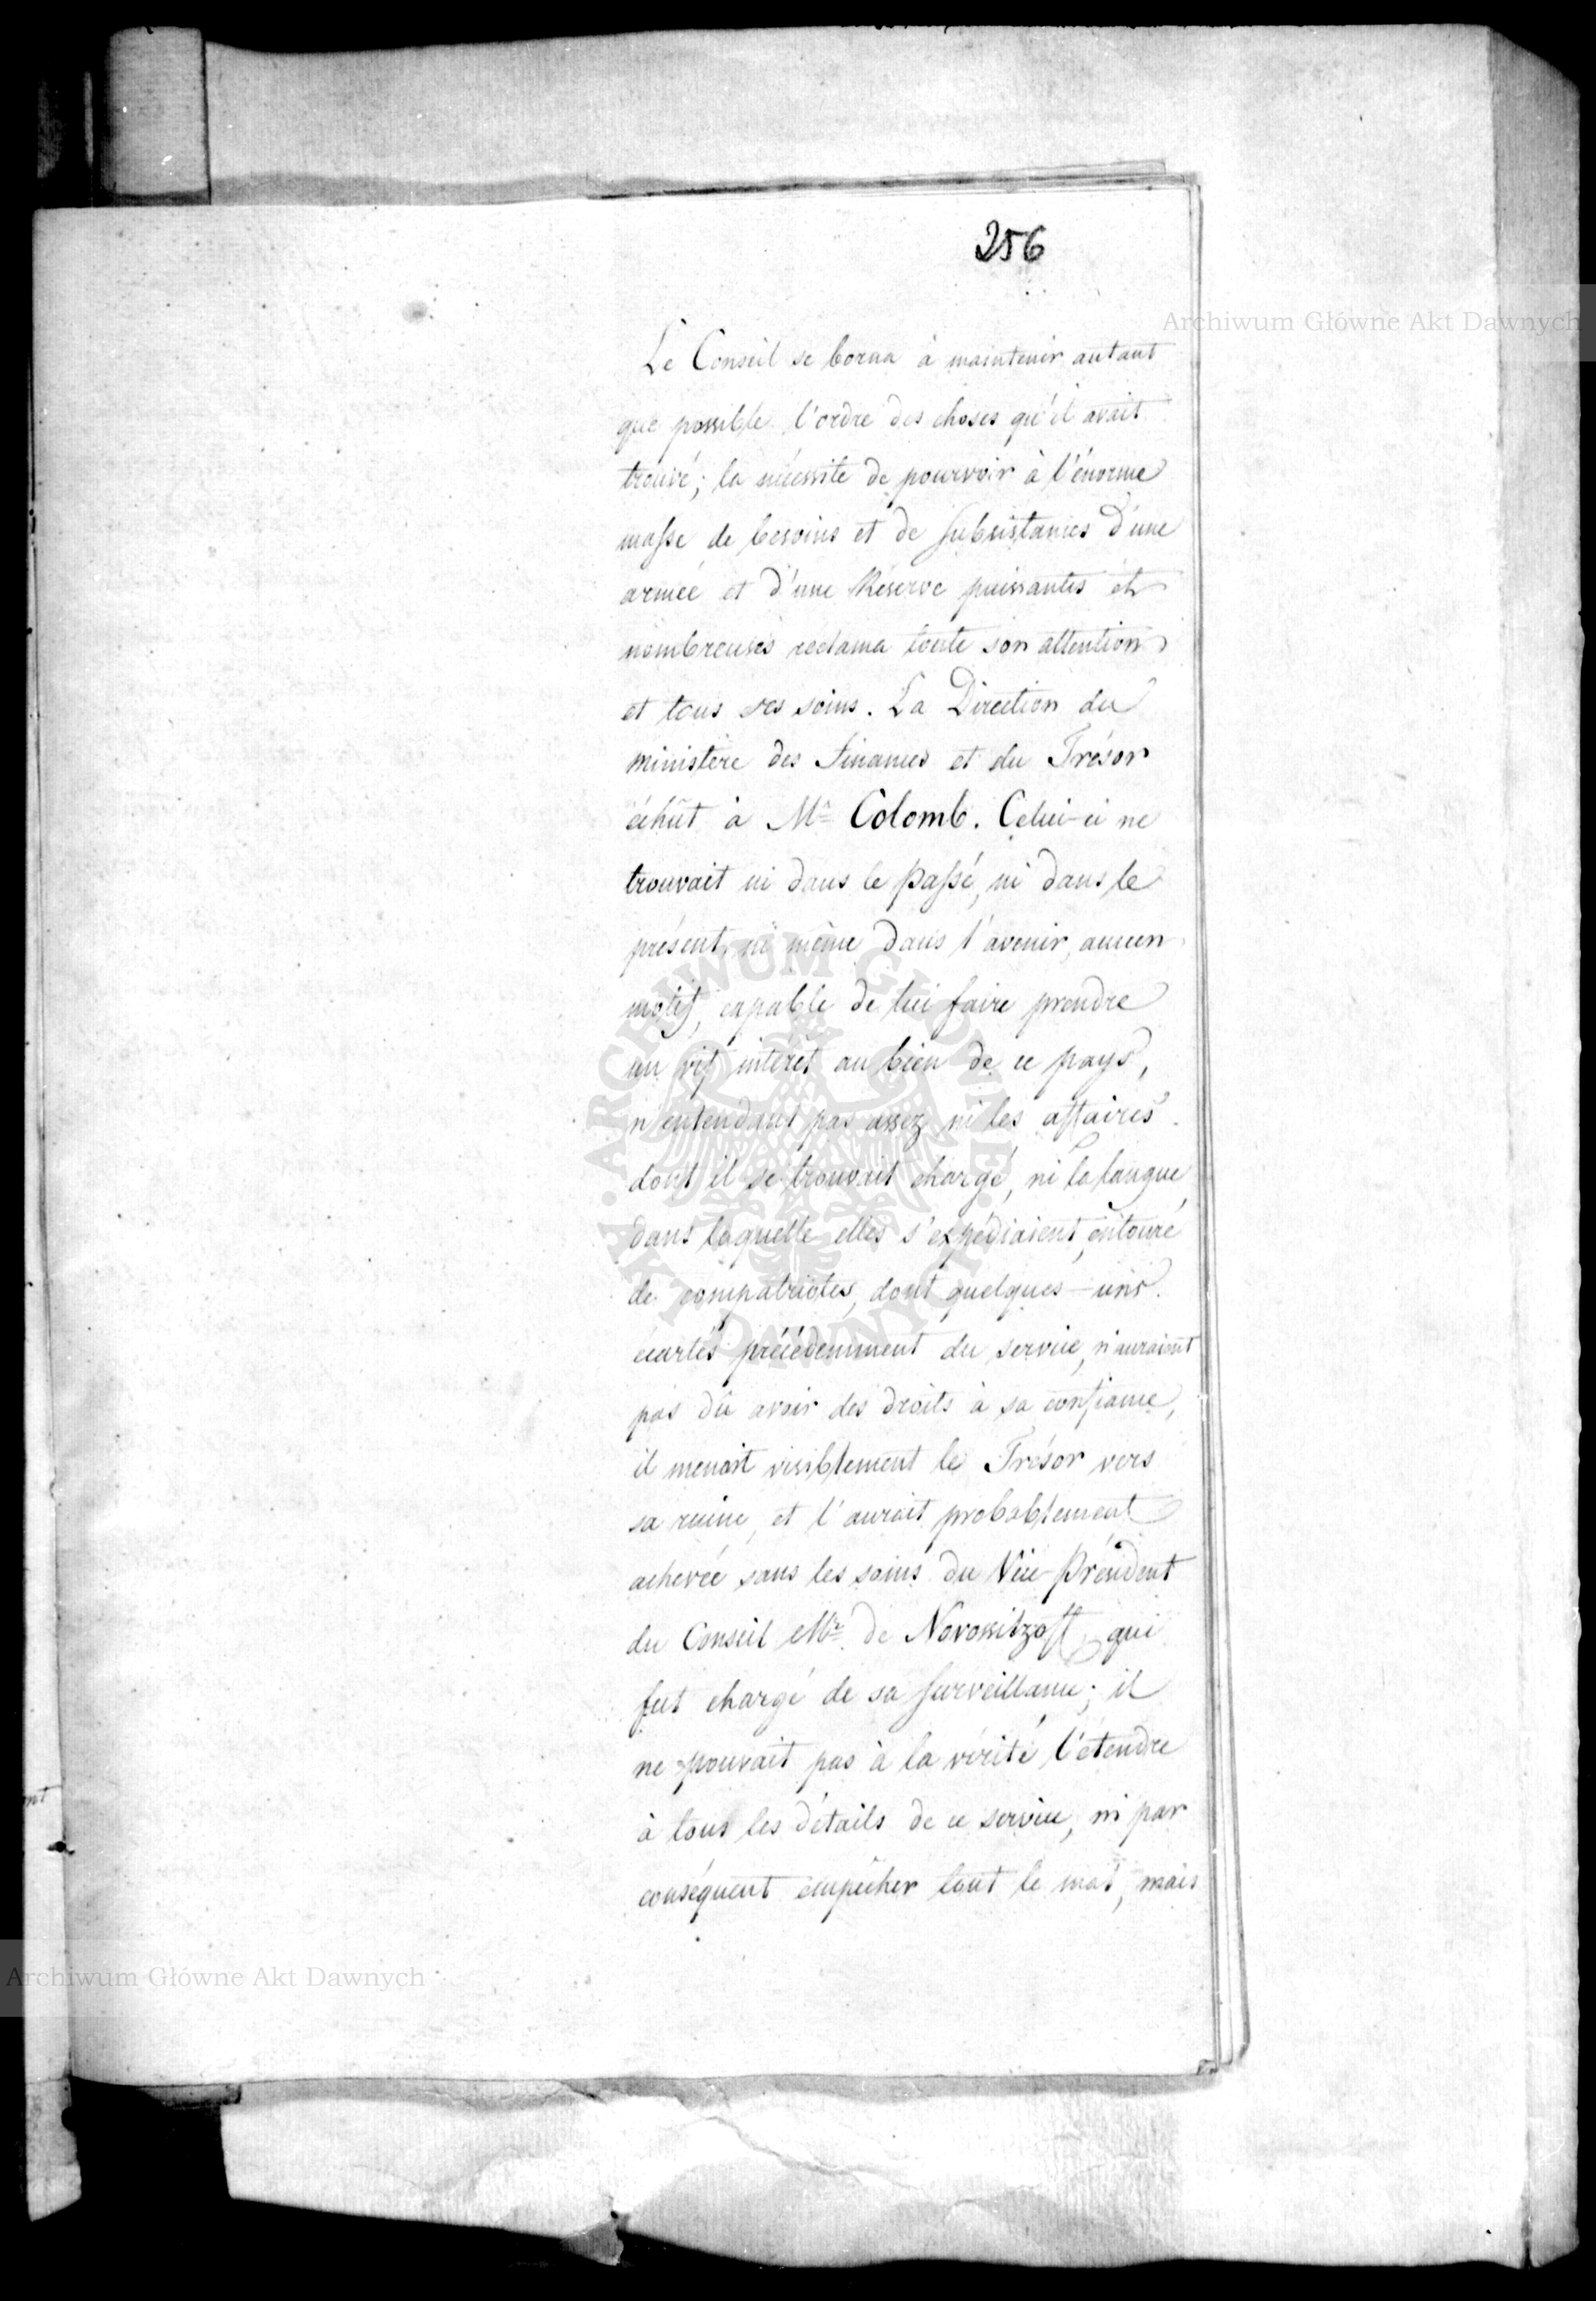 256
Archiwum Główne Akt Dawnych
Le Conseil se borna à maintenir autant
que possible l'ordre des choses qu'il avait
trouvé; la nécessité de pourvoir à l'énorme
masse de besoins et de subsistances d'une
armée et d'une Réserve puissantes et
nombreuses reclama toute son attention
et tous ses soins. La Direction du
ministère des Finances et du Trésor
échût à Mr Colomb. Celui-ci ne
trouvait ni dans le passé, ni dans le
présent, ni même dans l'avenir, aucun
motif, capable de lui faire prendre
un vif intérêt au bien de ce pays,
n'entendant pas assez ni les affaires
dont il se trouvait chargé, ni la langue
dans laquelle elles s'expédiaient, entouré
de compatriotes, dont quelques-uns
écartés précédemment du service, n'auraient
pas dû avoir des droits à sa confiance,
il menait visiblement le Trésor vers
sa ruine, et l'aurait probablement
achevée sans les soins du Vice-Président
du Conseil Mr de Novossitzoff, qui
fut chargé de sa surveillance; il
ne pouvait pas à la vérité l'étendre
à tous les détails de ce service, ni par
conséquent empêcher tout le mal, mais
ARCHIWUM GŁÓWNE AKT DAWNYCH
Archiwum Główne Akt Dawnych